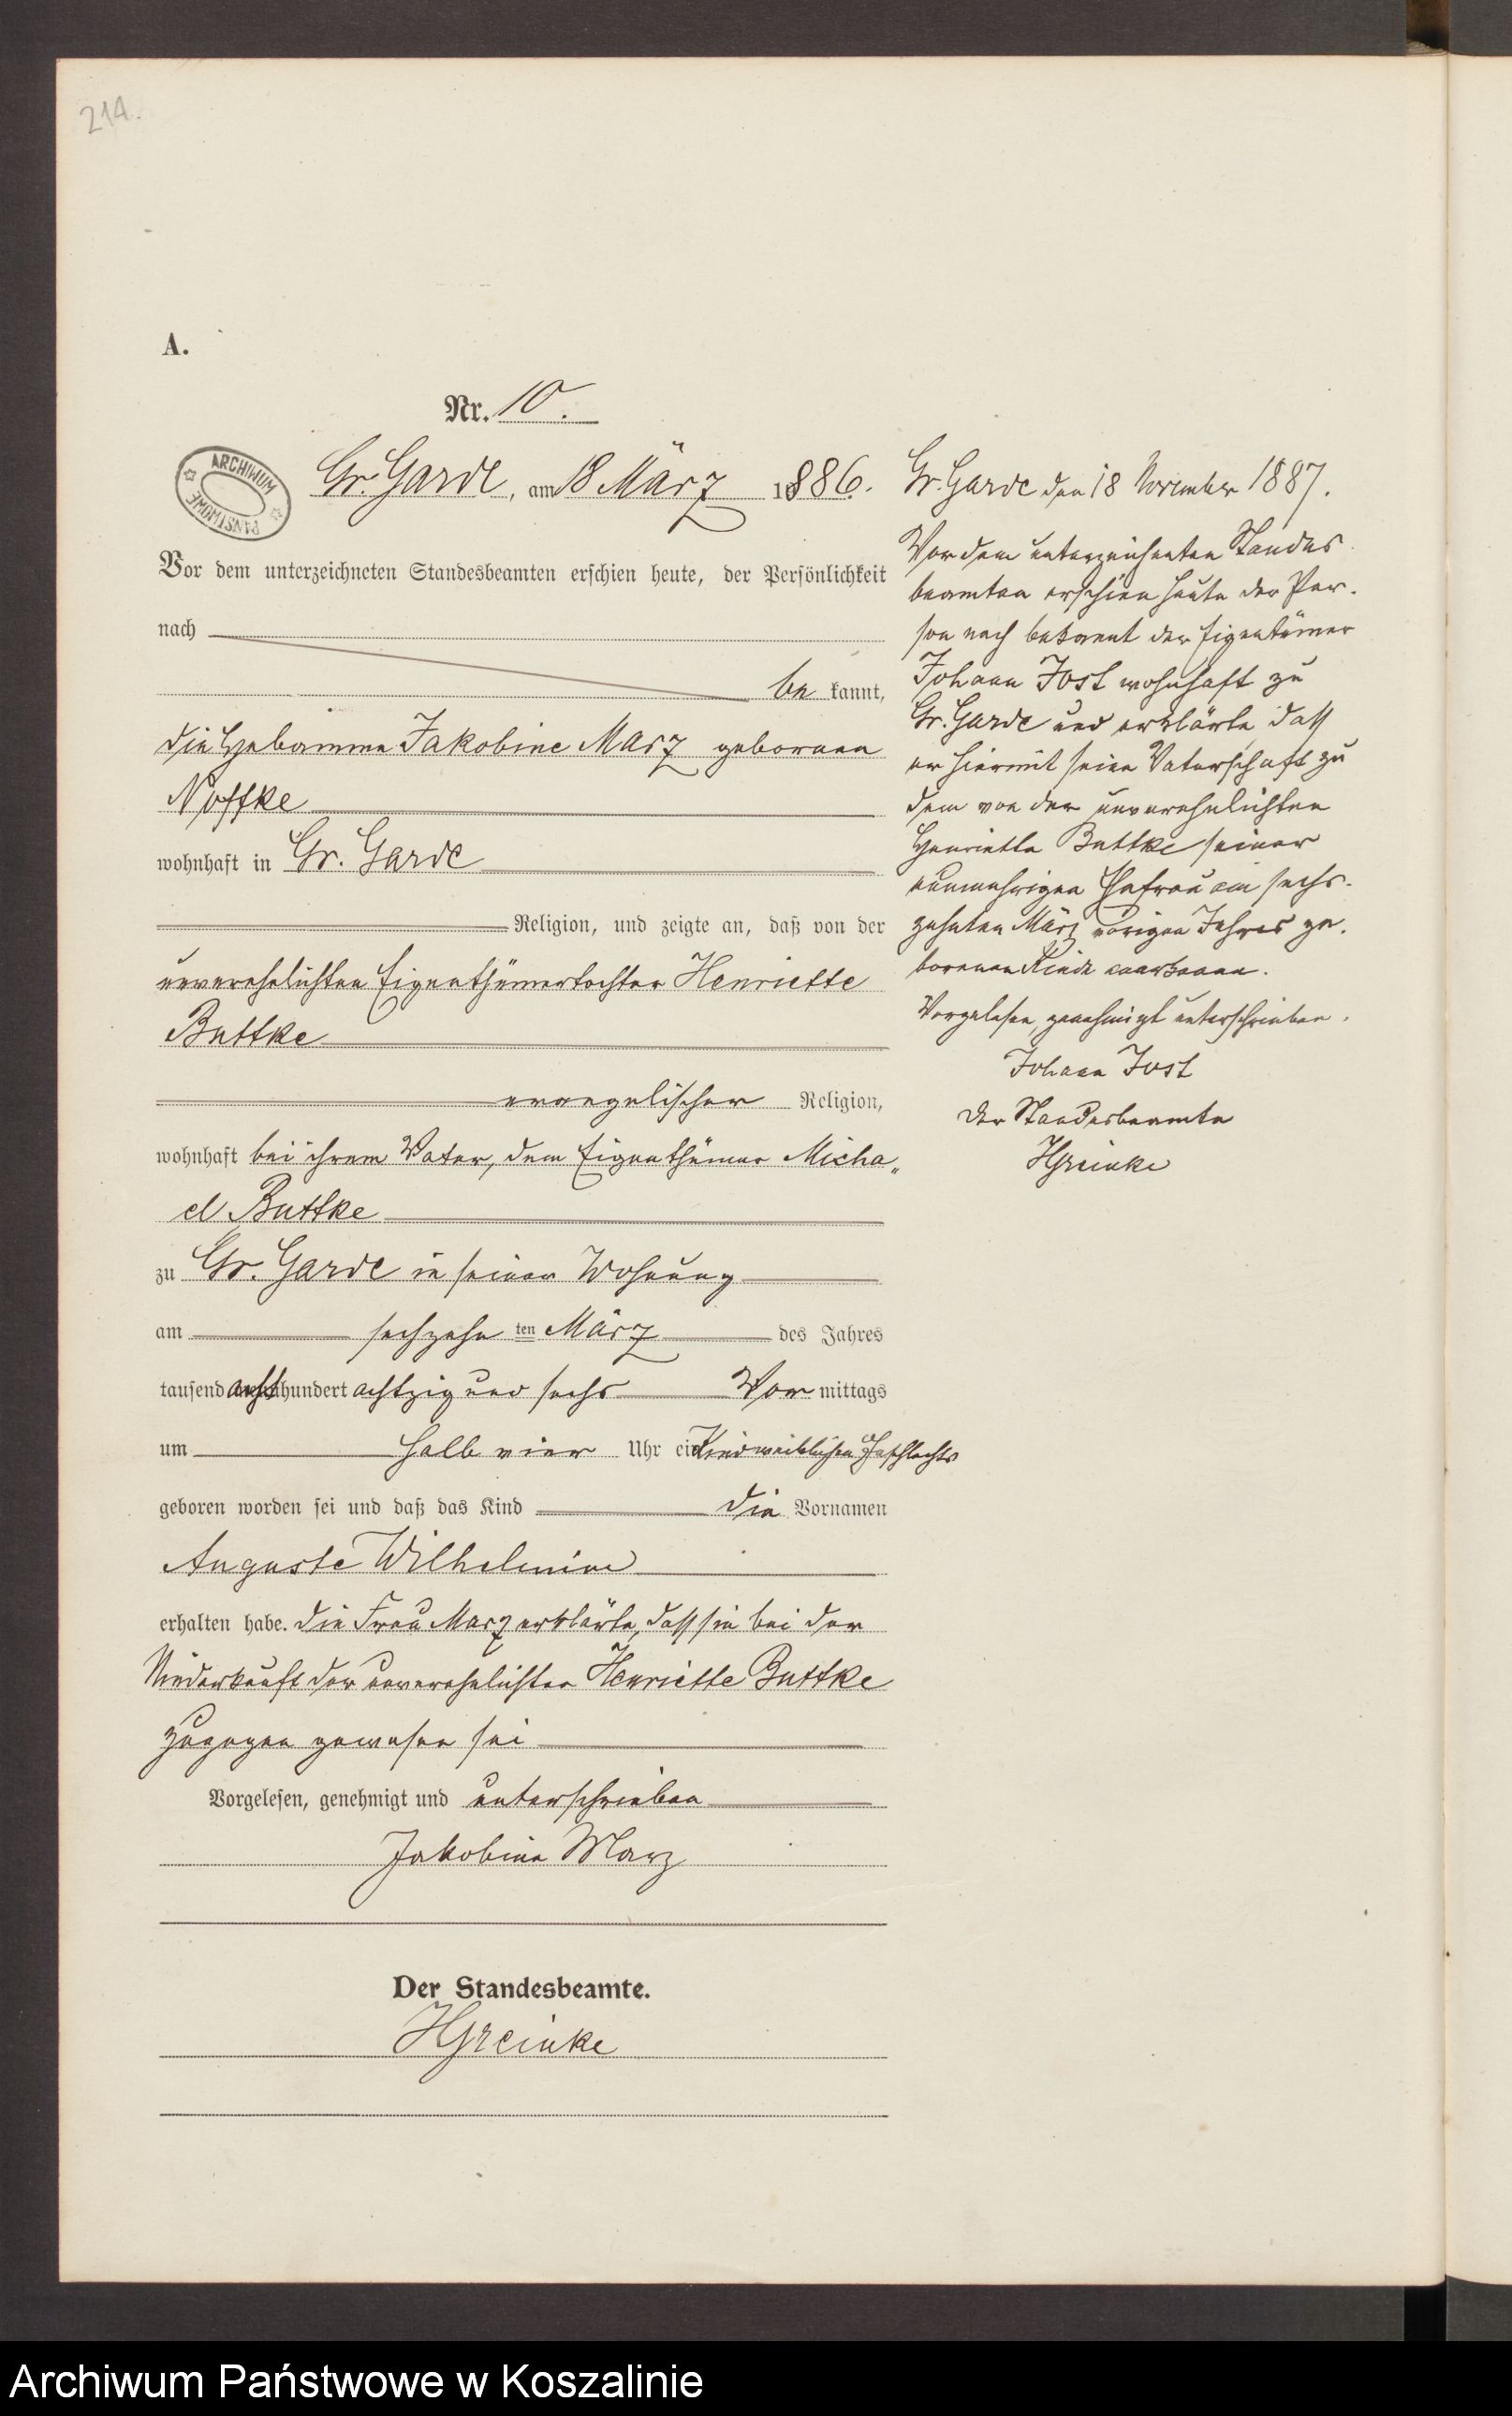 214.
A.
Nr. 10.
ARCHIWUM PAŃSTWOWE
Gr. Garde, am 18 März 1886.
Vor dem unterzeichneten Standesbeamten erschien heute, der Persönlichkeit
nach
be kannt,
die Hebamme Jakobine Marz geborene
Noffke
wohnhaft in Gr. Garde
Religion, und zeigte an, daß von der
unverehelichten Eigenthümertochter Henriette
Buttke
evangelischer Religion,
wohnhaft bei ihrem Vater, dem Eigenthümer Micha„
el Buttke
zu Gr. Garde in seiner Wohnung
am sechzehn ten März des Jahres
tausend acht hundert achtzig und sechs Vor mittags
um halb vier Uhr ein Kind weiblichen Geschlechts
geboren worden sei und daß das Kind die Vornamen
Auguste Wilhelmine
erhalten habe. Die Frau Marz erklärte, dass sie bei der
Niederkunft der unverehelichten Henriette Buttke
zugegen gewesen sei
Vorgelesen, genehmigt und unterschrieben
Jakobine Marz
Der Standesbeamte.
HGreinke
Gr. Garde den 18 November 1887.
Vor dem unterzeichneten Standes
beamten erschien heute der Per-
son nach bekannt der Eigentümer
Johann Jost wohnhaft zu
Gr. Garde und erklärte, dass
er hiermit seine Vaterschaft zu
dem von der unverehelichten
Henriette Buttke seiner
nunmehrigen Ehefrau am sechs-
zehnten März vorigen Jahres ge-
borenen Kinde anerkenne.
Vorgelesen, genehmigt unterschrieben.
Johann Jost
Der Standesbeamte
HGreinke
Archiwum Państwowe w Koszalinie